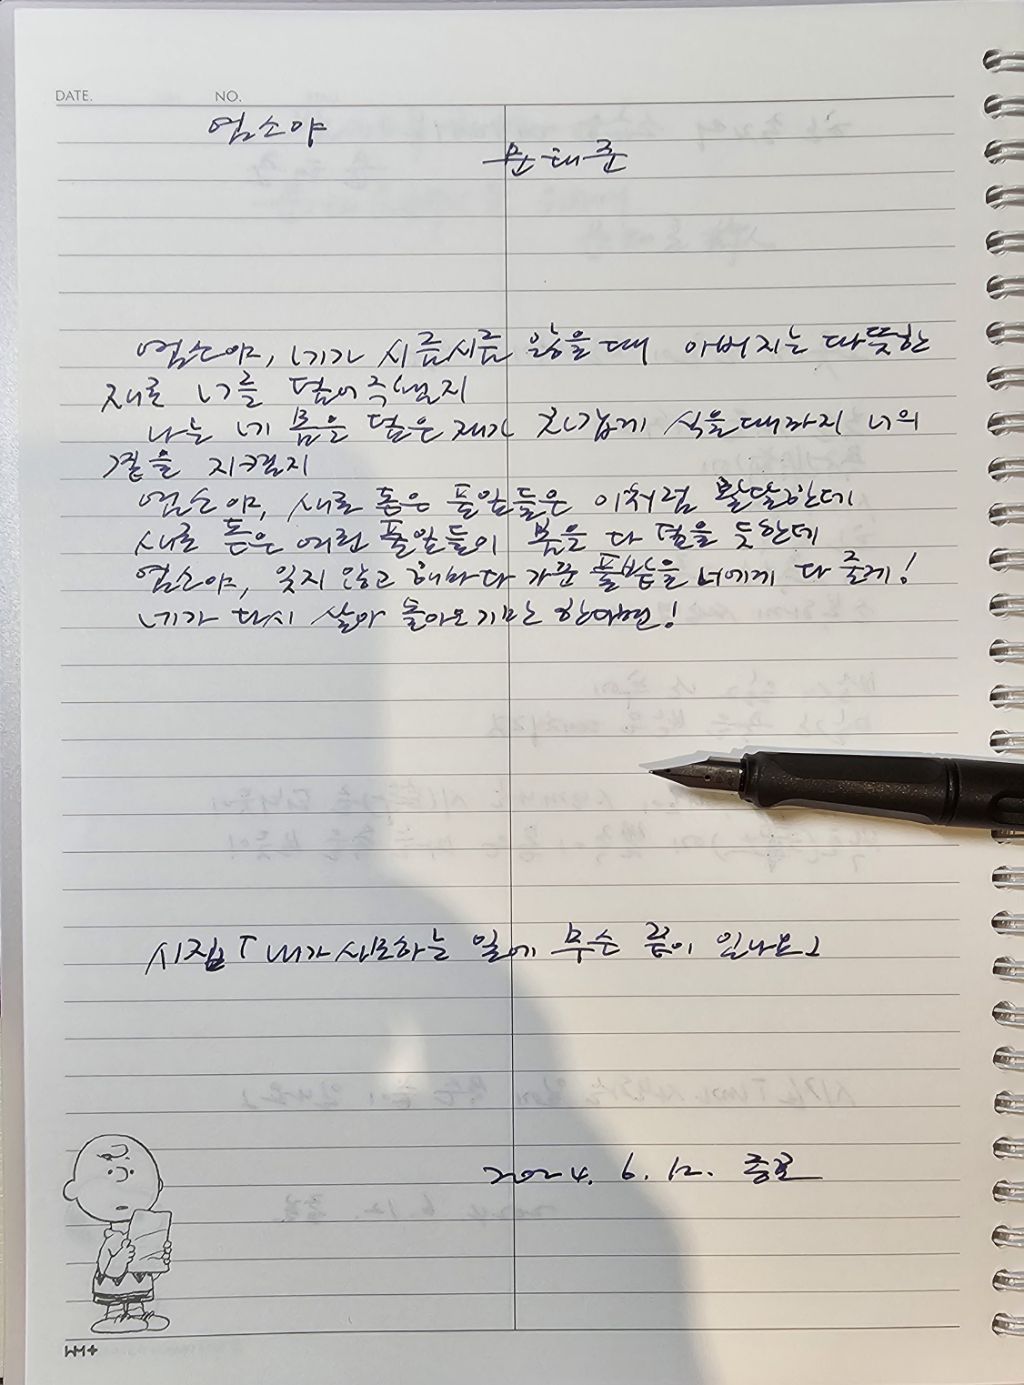 DATE. NO.
염소야
문태준
염소야, 네가 시름시름 앓을 때 아버지는 따뜻한
재로 너를 덮어주셨지
나는 네 몸을 덮은 재가 차갑게 식을 때까지 너의
곁을 지켰지
염소야, 새로 돋은 풀잎들은 이처럼 활달한데
새로 돋은 여린 풀잎들이 봄을 다 덮을 듯한데
염소야, 잊지 않고 해마다 가꾼 풀밭을 너에게 다 줄게!
네가 다시 살아 돌아오기만 한다면!
시집 「 내가 사모하는 일에 무슨 끝이 있나요 」
2024. 6. 12. 종로
WM+